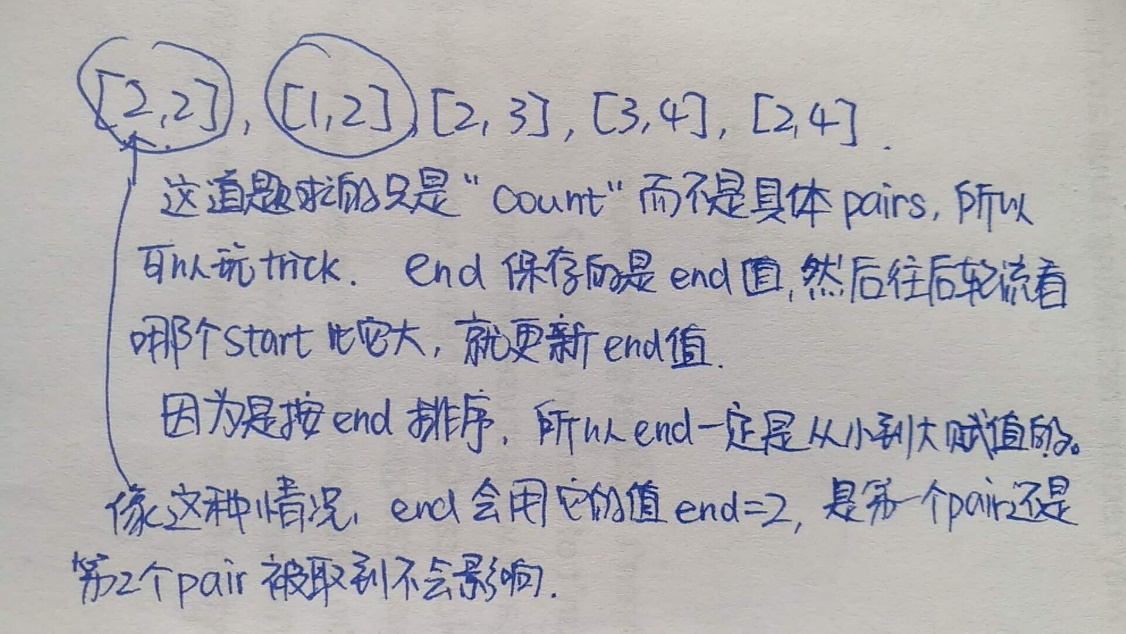 [2,2], [1,2], [2,3], [3,4], [2,4].
这道题求的只是“count”而不是具体pairs, 所以
可以玩trick. end 保存的是end值, 然后往后轮流看
哪个start比它大, 就更新end值.
因为是按end排序, 所以end一定是从小到大赋值的。
像这种情况, end会用它的值end=2, 是第一个pair还是
第2个pair被取到不会影响.